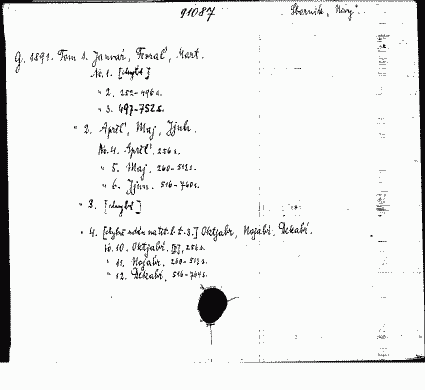 91087
Sborník „Nivy".
G. 1891. Tom 1. Janvar', Fevral', Mart.
No. 1. [chybí]
" 2. 252-496 s.
" 3. 497-752 s.
" 2. Aprěl', Maj, Ijun.
No. 4. Aprěl'. 256 s.
" 5. Maj. 260-512 s.
" 6. Ijun. 516-760 s.
" 3. [chybí]
" 4. Oktjabr, Nojabr, Dekabr.
No. 10. Oktjabr. 256 s.
" 11. Nojabr. 260-512 s.
" 12. Dekabr. 516-764 s.